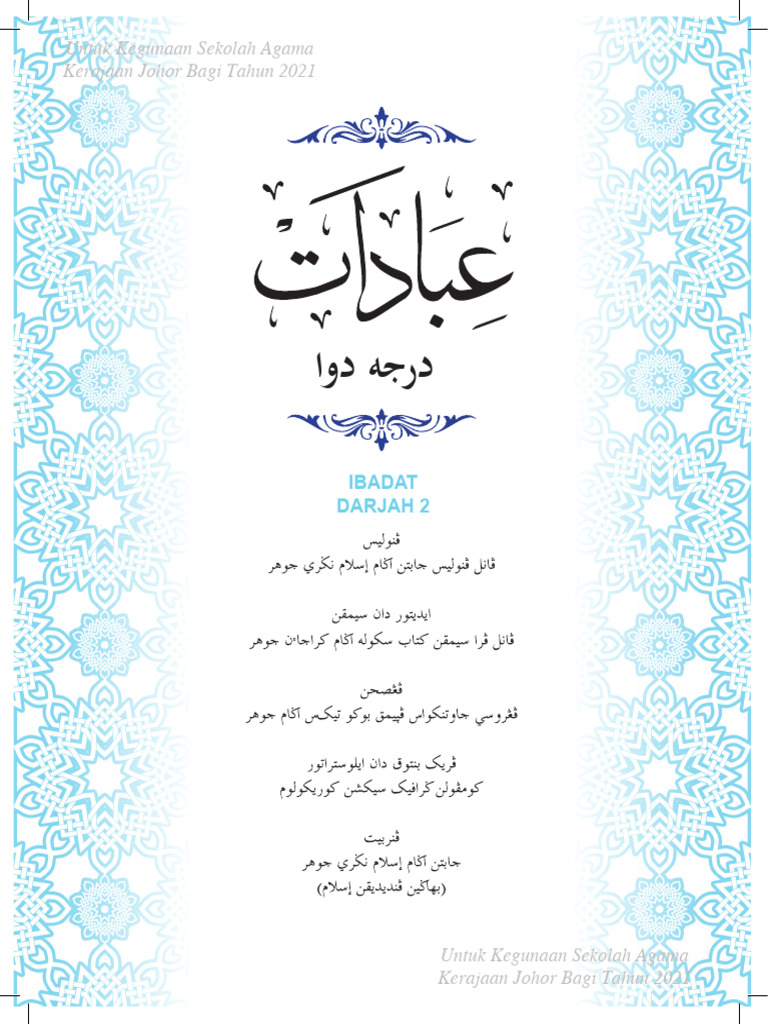 Untuk Kegunaan Sekolah Agama
Kerajaan Johor Bagi Tahun 2021
عِبَادَاتْ
درجه دوا
IBADAT
DARJAH 2
ڤنوليس
ڤانل ڤنوليس جابتن اݢام إسلام نݢري جوهر
ايديتور دان سيمقن
ڤانل ڤرا سيمقن کتاب سکوله اݢام کراجاءن جوهر
ڤڠصحن
ڤڠروسي جاوتنکواس ڤپيمق بوکو تيکس اݢام جوهر
ڤريک بنتوق دان ايلوستراتور
کومڤولن ݢرافيک سيکشن کوريکولوم
ڤنربيت
جابتن اݢام إسلام نݢري جوهر
(بهاݢين ڤنديديقن إسلام)
Untuk Kegunaan Sekolah Agama
Kerajaan Johor Bagi Tahun 2021